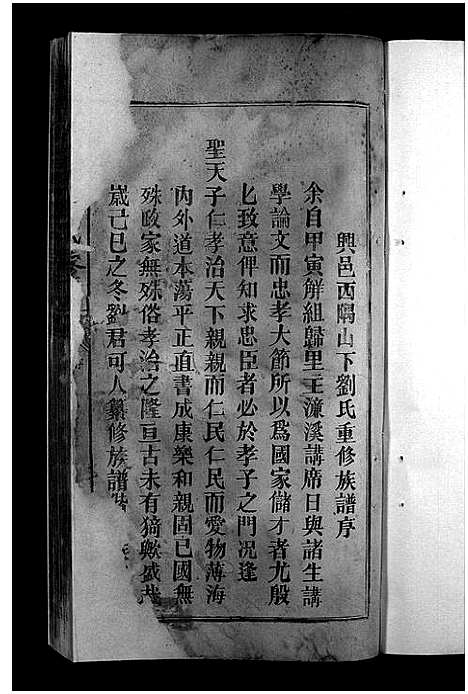 興邑西隅山下劉氏重修族譜序
余自甲寅解組歸里主濂溪講席日與諸生講
學論文而忠孝大節所以爲國家儲才者尤殷
匕致意俾知求忠臣者必於孝子之門況逢
聖天子仁孝治天下親親而仁民仁民而愛物薄海
內外道本蕩平正直書成康樂和親固已國無
殊政家無殊俗孝治之隆亘古未有猗歟盛哉
嵗己巳之冬劉君可人纂修族譜